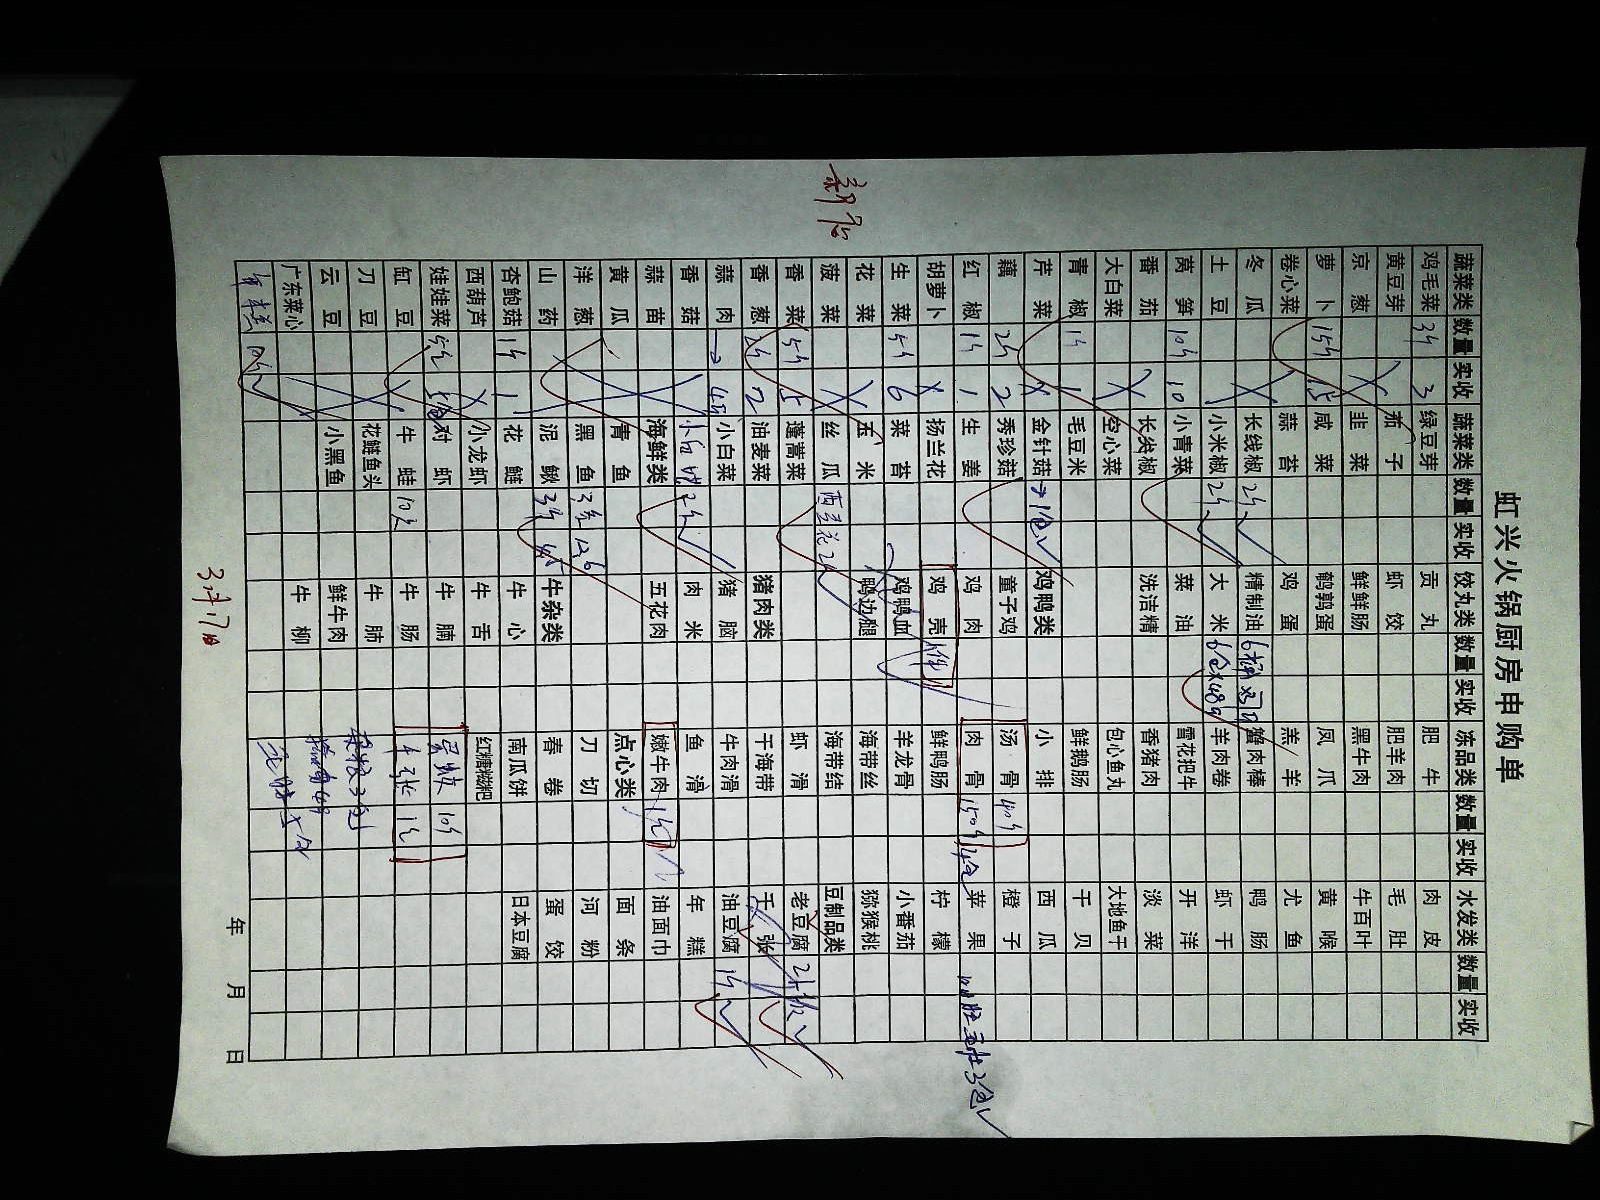 新店
虹兴火锅厨房申购单
蔬菜类 数量 实收 蔬菜类 数量 实收 饺丸类 数量 实收 冻品类 数量 实收 水发类 数量 实收
鸡毛菜 3斤 3 绿豆芽 贡丸 肥牛 肉皮
黄豆芽 茄子 虾饺 肥羊肉 毛肚
京葱 韭菜 鲜鲜肠 黑牛肉 牛百叶
萝卜 15斤 15 咸菜 鹌鹑蛋 凤爪 黄喉
卷心菜 蒜苔 鸡蛋 羔羊 尤鱼
冬瓜 长线椒 2斤 精制油 6桶 蟹肉棒 鸭肠
土豆 小米椒 2斤 大米 羊肉卷 虾干
莴笋 10斤 10 小青菜 菜油 雪花把牛 开洋
番茄 长尖椒 洗洁精 香猪肉 淡菜
大白菜 空心菜 包心鱼丸 大地鱼干
青椒 1斤 1 毛豆米 鲜鹅肠 干贝
芹菜 金针菇 1包 鸡鸭类 小排 西瓜
藕 2斤 2 秀珍菇 童子鸡 汤骨 40斤 橙子
红椒 1斤 1 生姜 鸡肉 肉骨 150斤 苹果
胡萝卜 扬兰花 鸡壳 1件 鲜鸭肠 柠檬
生菜 5斤 6 菜苔 鸡鸭血 羊龙骨 小番茄
花菜 玉米 鸭边腿 海带丝 猕猴桃
菠菜 丝瓜 西兰花 2斤 海带结 豆制品类
香菜 5斤 5 蓬蒿菜 虾滑 老豆腐
香葱 2斤 2 油麦菜 猪肉类 干海带 千张
蒜肉 小白菜 猪脑 牛肉滑 油豆腐 1斤
香菇 肉米 鱼滑 年糕
蒜苗 海鲜类 五花肉 嫩牛肉 油面巾
黄瓜 青鱼 点心类 面条
洋葱 黑鱼 3条 12.6 刀切 河粉
山药 泥鳅 3斤 牛杂类 春卷 蛋饺
杏鲍菇 1斤 1 花鲢 牛心 南瓜饼 日本豆腐
西葫芦 小龙虾 牛舌 红糖糍粑
娃娃菜 对虾 牛腩 10斤
缸豆 牛蛙 10只 牛肠 千张
刀豆 花鲢鱼头 牛肺
云豆 小黑鱼 鲜牛肉
广东菜心 牛柳
年糕 10斤
年 月 日
3月17日